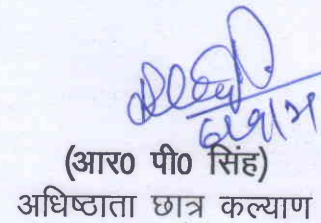 (आर0 पी0 सिंह)
अधिष्ठाता छात्र कल्याण